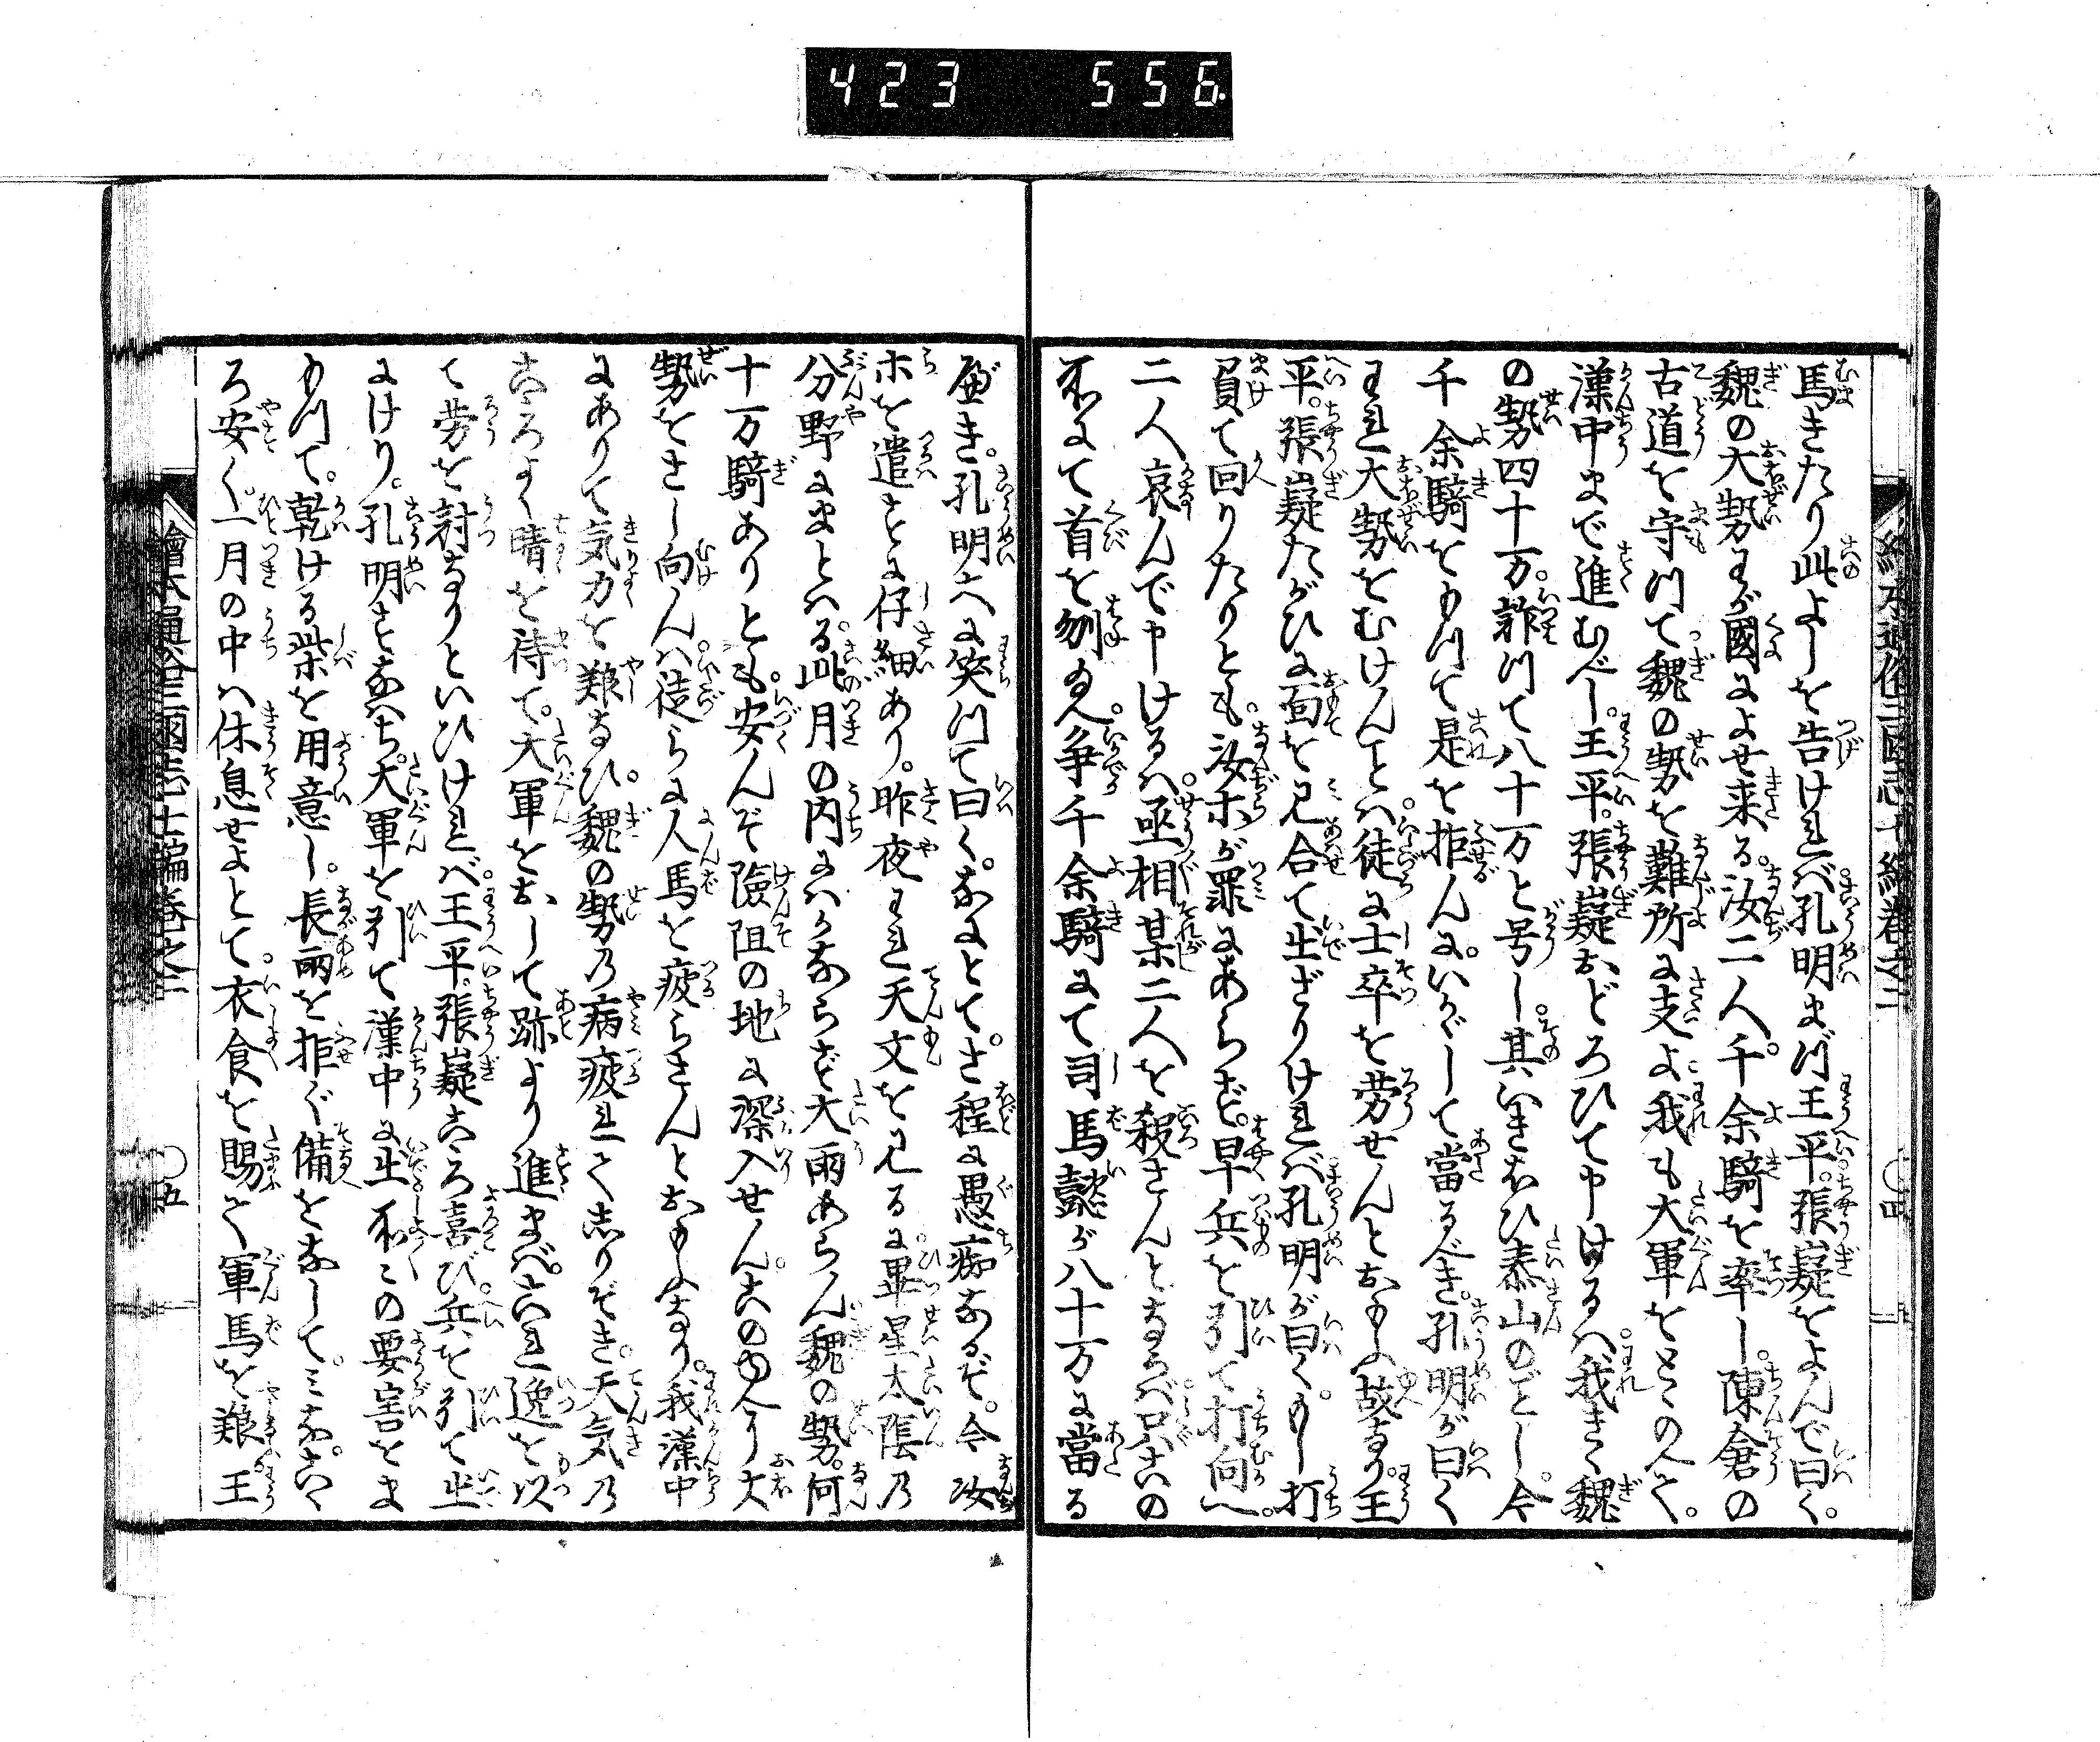 423 556
馬きたり此よしを告ければ孔明まづ王平。張嶷をよんで曰く。
魏の大勢わが國によせ来る。汝二人。千余騎を率し。陳倉の
古道を守つて魏の勢を難所に支よ我も大軍をとゝのへて。
漢中まで進むべし。王平。張嶷おどろひて申けるハ。我きく魏
の勢四十万。詐つて八十万と号し。其いきおひ泰山のごとし。今
千余騎をもつて是を拒んに。いかゞして當るべき。孔明が曰く
われ大勢をむけんとハ。徒に士卒を労せんとおもふ故なり。王
平。張嶷たがひに面を見合て出ざりければ。孔明が曰く。もし打
負て回りたりとも。汝ホが罪にあらず。早兵を引て打向へ。
二人哀んで申けるハ。丞相某二人を殺さんとならバ。只この
所にて首を刎玉へ。争千余騎にて司馬懿が八十万に當る
べき。孔明大に笑つて曰く。なにとて。さ程に愚痴なるぞ。今汝
ホを遣すに仔細あり。昨夜われ天文を見るに。畢星太陰の
分野にまとハる。此月の内にハかならず大雨あらん。魏の勢。何
十万騎ありとも。安んぞ險阻の地に深入せん。このゆへに大
勢をさし向んハ。徒らに人馬を疲らさんとおもふなり。我漢中
にありて気力を養なひ。魏の勢の病疲れてしりぞき。天気の
こゝろよく晴を待て。大軍をおこして跡より進まバ。これ逸を以
て労を討なりといひければ。王平。張嶷こゝろ喜び。兵を引て出
にけり。孔明すなハち。大軍を引て漢中に出所〻の要害をま
もつて。乾ける柴を用意し。長雨を拒ぐ備をなして。ミな。こゝ
ろ安く。一月の中ハ休息せよとて。衣食を賜て軍馬を養王
繪本通俗三國志七編巻之二
〇四
〇五